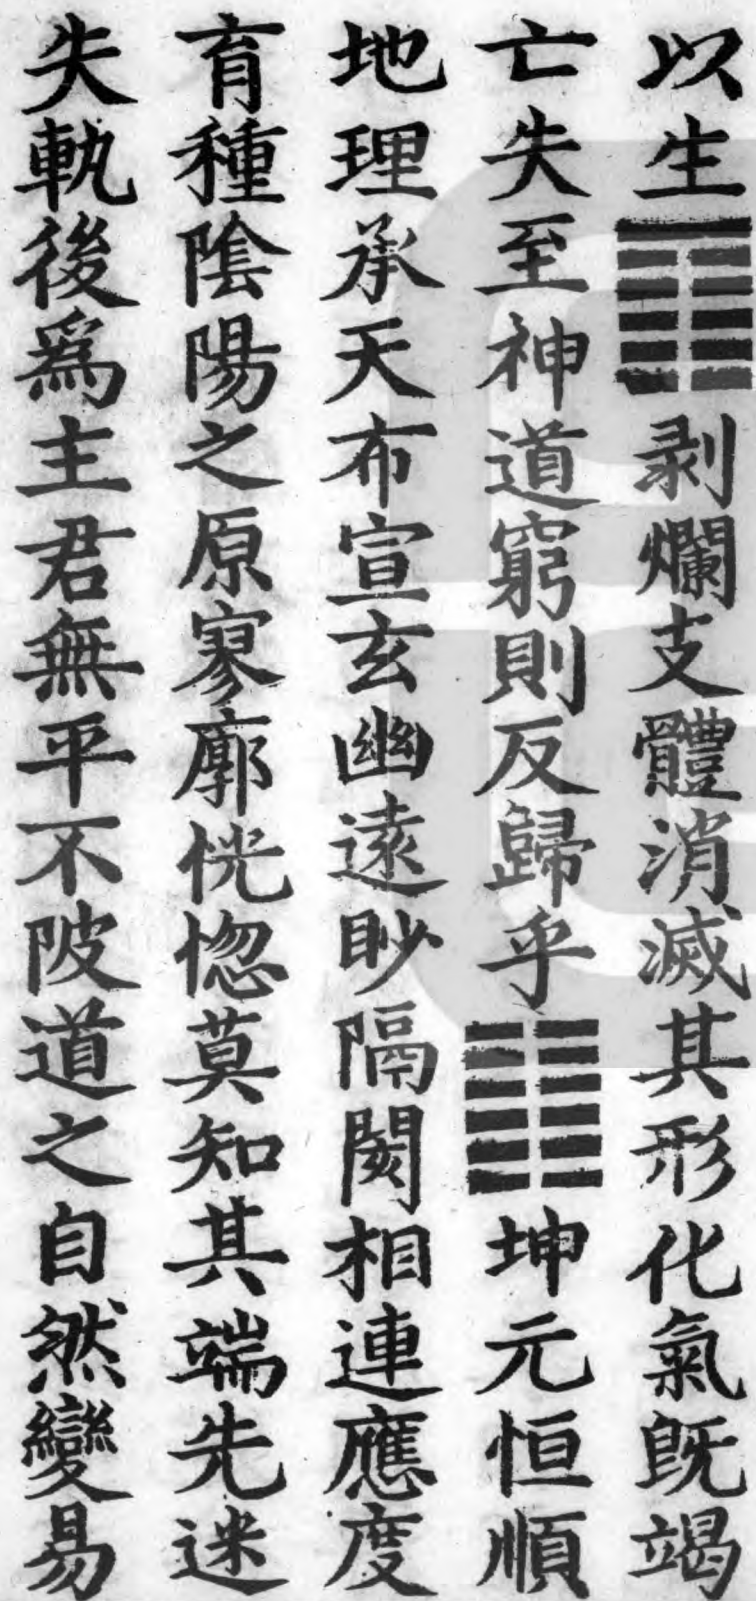 以生䷖剥爛支體消滅其形化氣既竭
亡失至神道窮則反歸乎䷁坤元恒順
地理承天布宣玄幽遠眇隔閡相連應度
育種隂陽之原寥廓恍惚莫知其端先迷
失軌後爲主君無平不陂道之自然變易